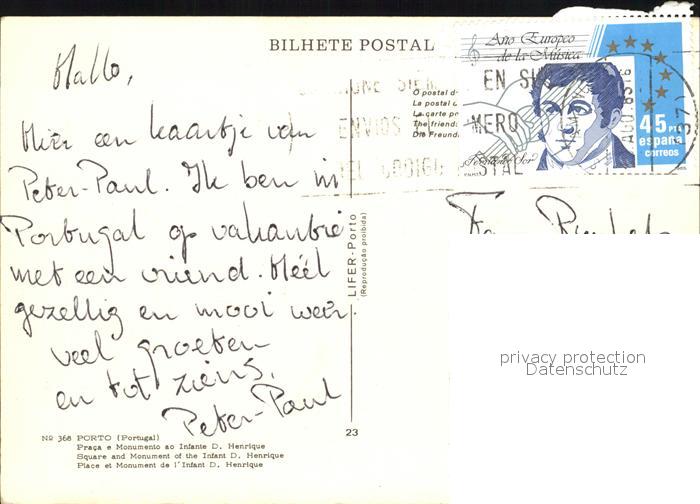 BILHETE POSTAL
Hallo,
Hier een kaartje van
Peter-Paul. Ik ben in
Portugal op vakantie
met een vriend. Héél
gezellig en mooi weer.
veel groeten
en tot ziens,
Peter-Paul
Nº 368 PORTO (Portugal)
Praça e Monumento ao Infante D. Henrique
Square and Monument of the Infant D. Henrique
Place et Monument de l'Infant D. Henrique
LIFER-Porto
(Reprodução proibida)
23
O postal d
La postal d
La carte po
The friend
Die Freund
Año Europeo
de la Música
Fernando Sor
45 PTA
españa
correos
EN SU
ENVIOS
NUMERO
CODIGO POSTAL
Fam
privacy protection
Datenschutz